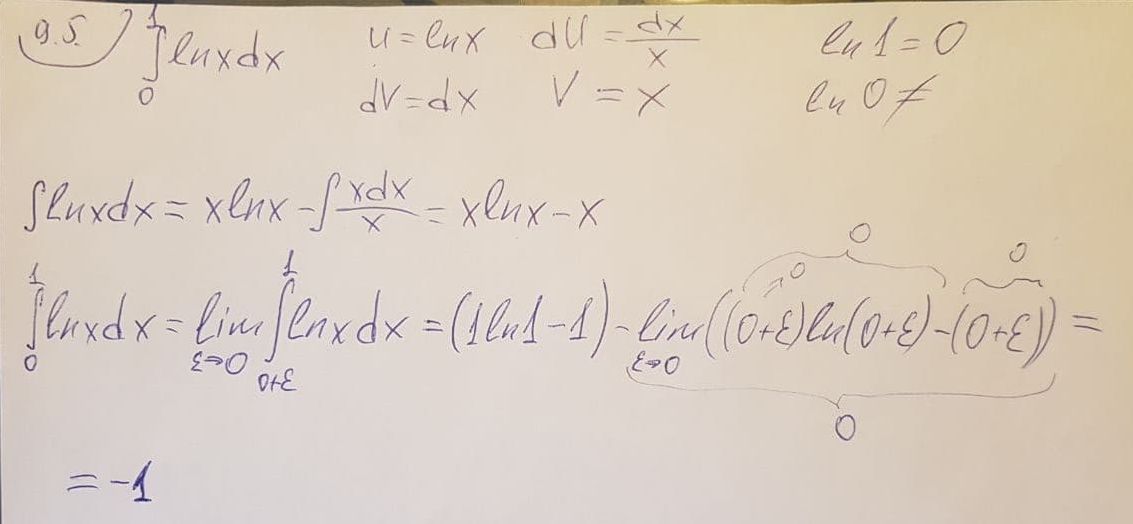 9.5.) ∫₀¹ lnxdx u = lnx dU = dx/x ln1 = 0
dV = dx V = x ln0 ≠
∫lnxdx = xlnx - ∫xdx/x = xlnx - x
∫₀¹ lnxdx = lim_{ε→0} ∫_{0+ε}^{1} lnxdx = (1ln1-1) - lim_{ε→0}((0+ε)ln(0+ε) - (0+ε)) =
→0 0 0
0
= -1